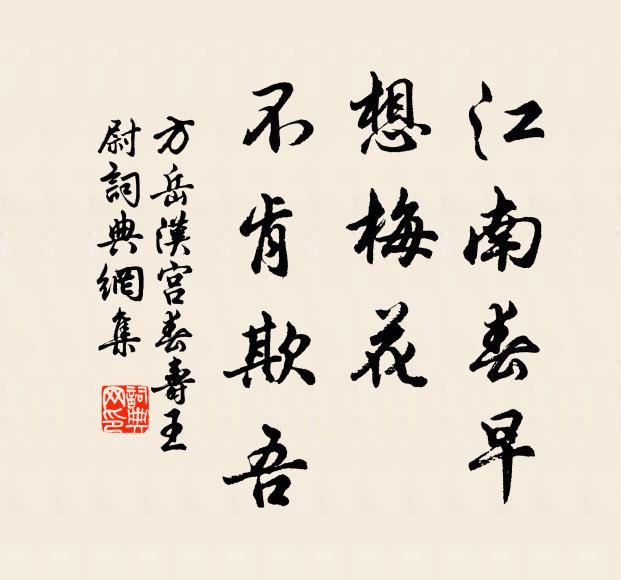 江南春早
想梅花
不肯欺吾
方岳漢宮春壽王
尉詞典網集
詞典网印